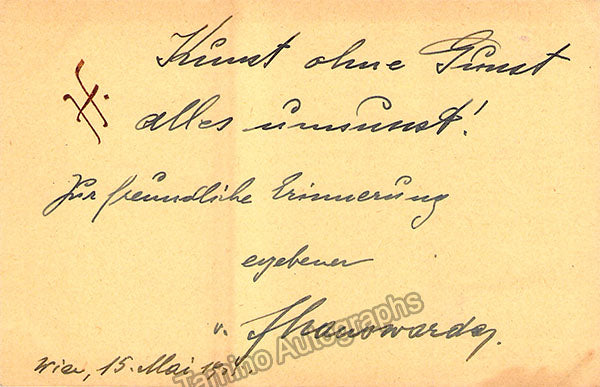 Kunst ohne Gunst
H.
alles umsunst!
Zur freundliche Erinnerung
ergebener
v. Manowarda
Wien, 15. Mai
Tamino Autographs